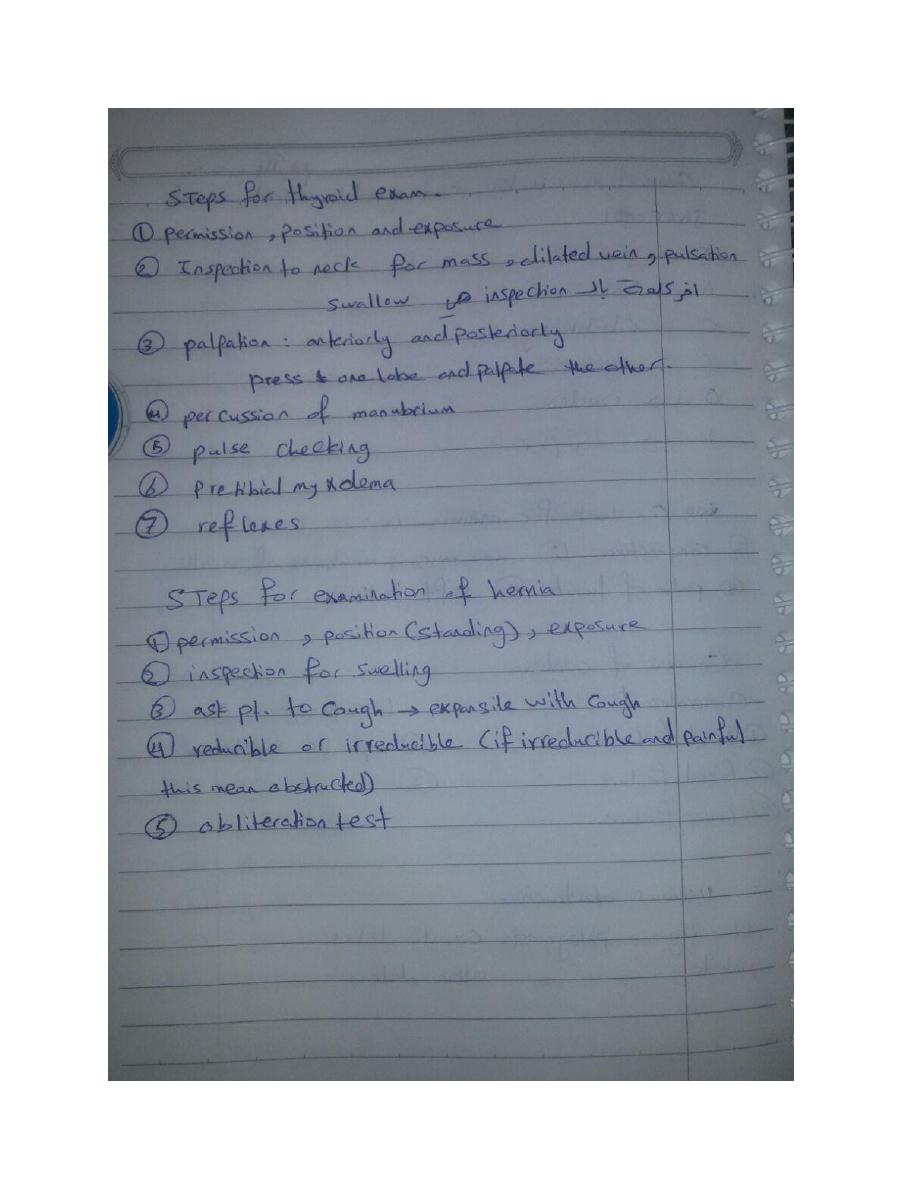 STeps for thyroid exam.
① permission, position and exposure
② Inspection to neck for mass, dilated vein, pulsation
اخر بالـ inspection هي swallow
③ palpation: anteriorly and posteriorly
press one lobe and palpate the other.
④ percussion of manubrium
⑤ pulse checking
⑥ pretibial myxdema
⑦ reflexes
STeps for examination of hernia
① permission, position (standing), exposure
② inspection for swelling
③ ask pt. to cough → expansile with cough
④ reducible or irreducible (if irreducible and painful
this mean obstructed)
⑤ obliteration test